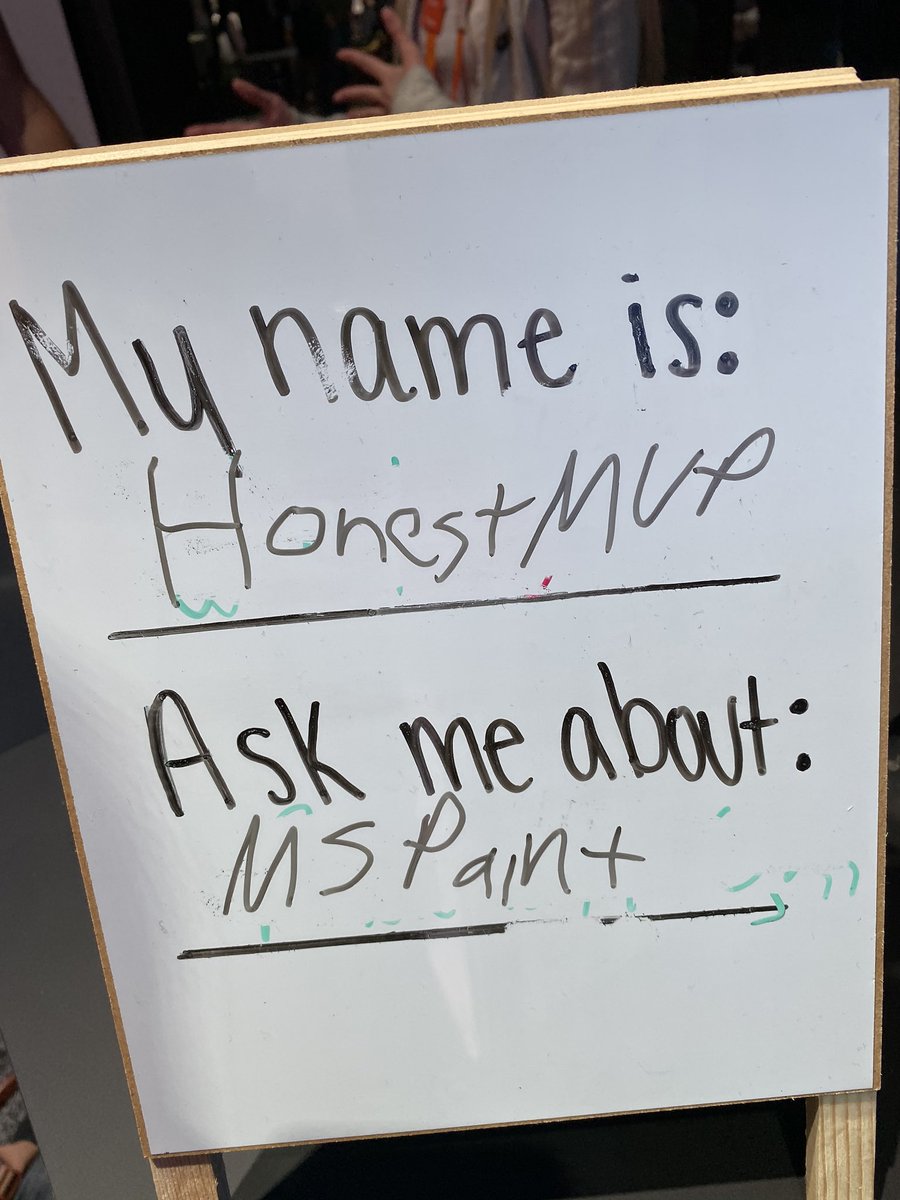 My name is:
HonestMVP
Ask me about:
MS Paint